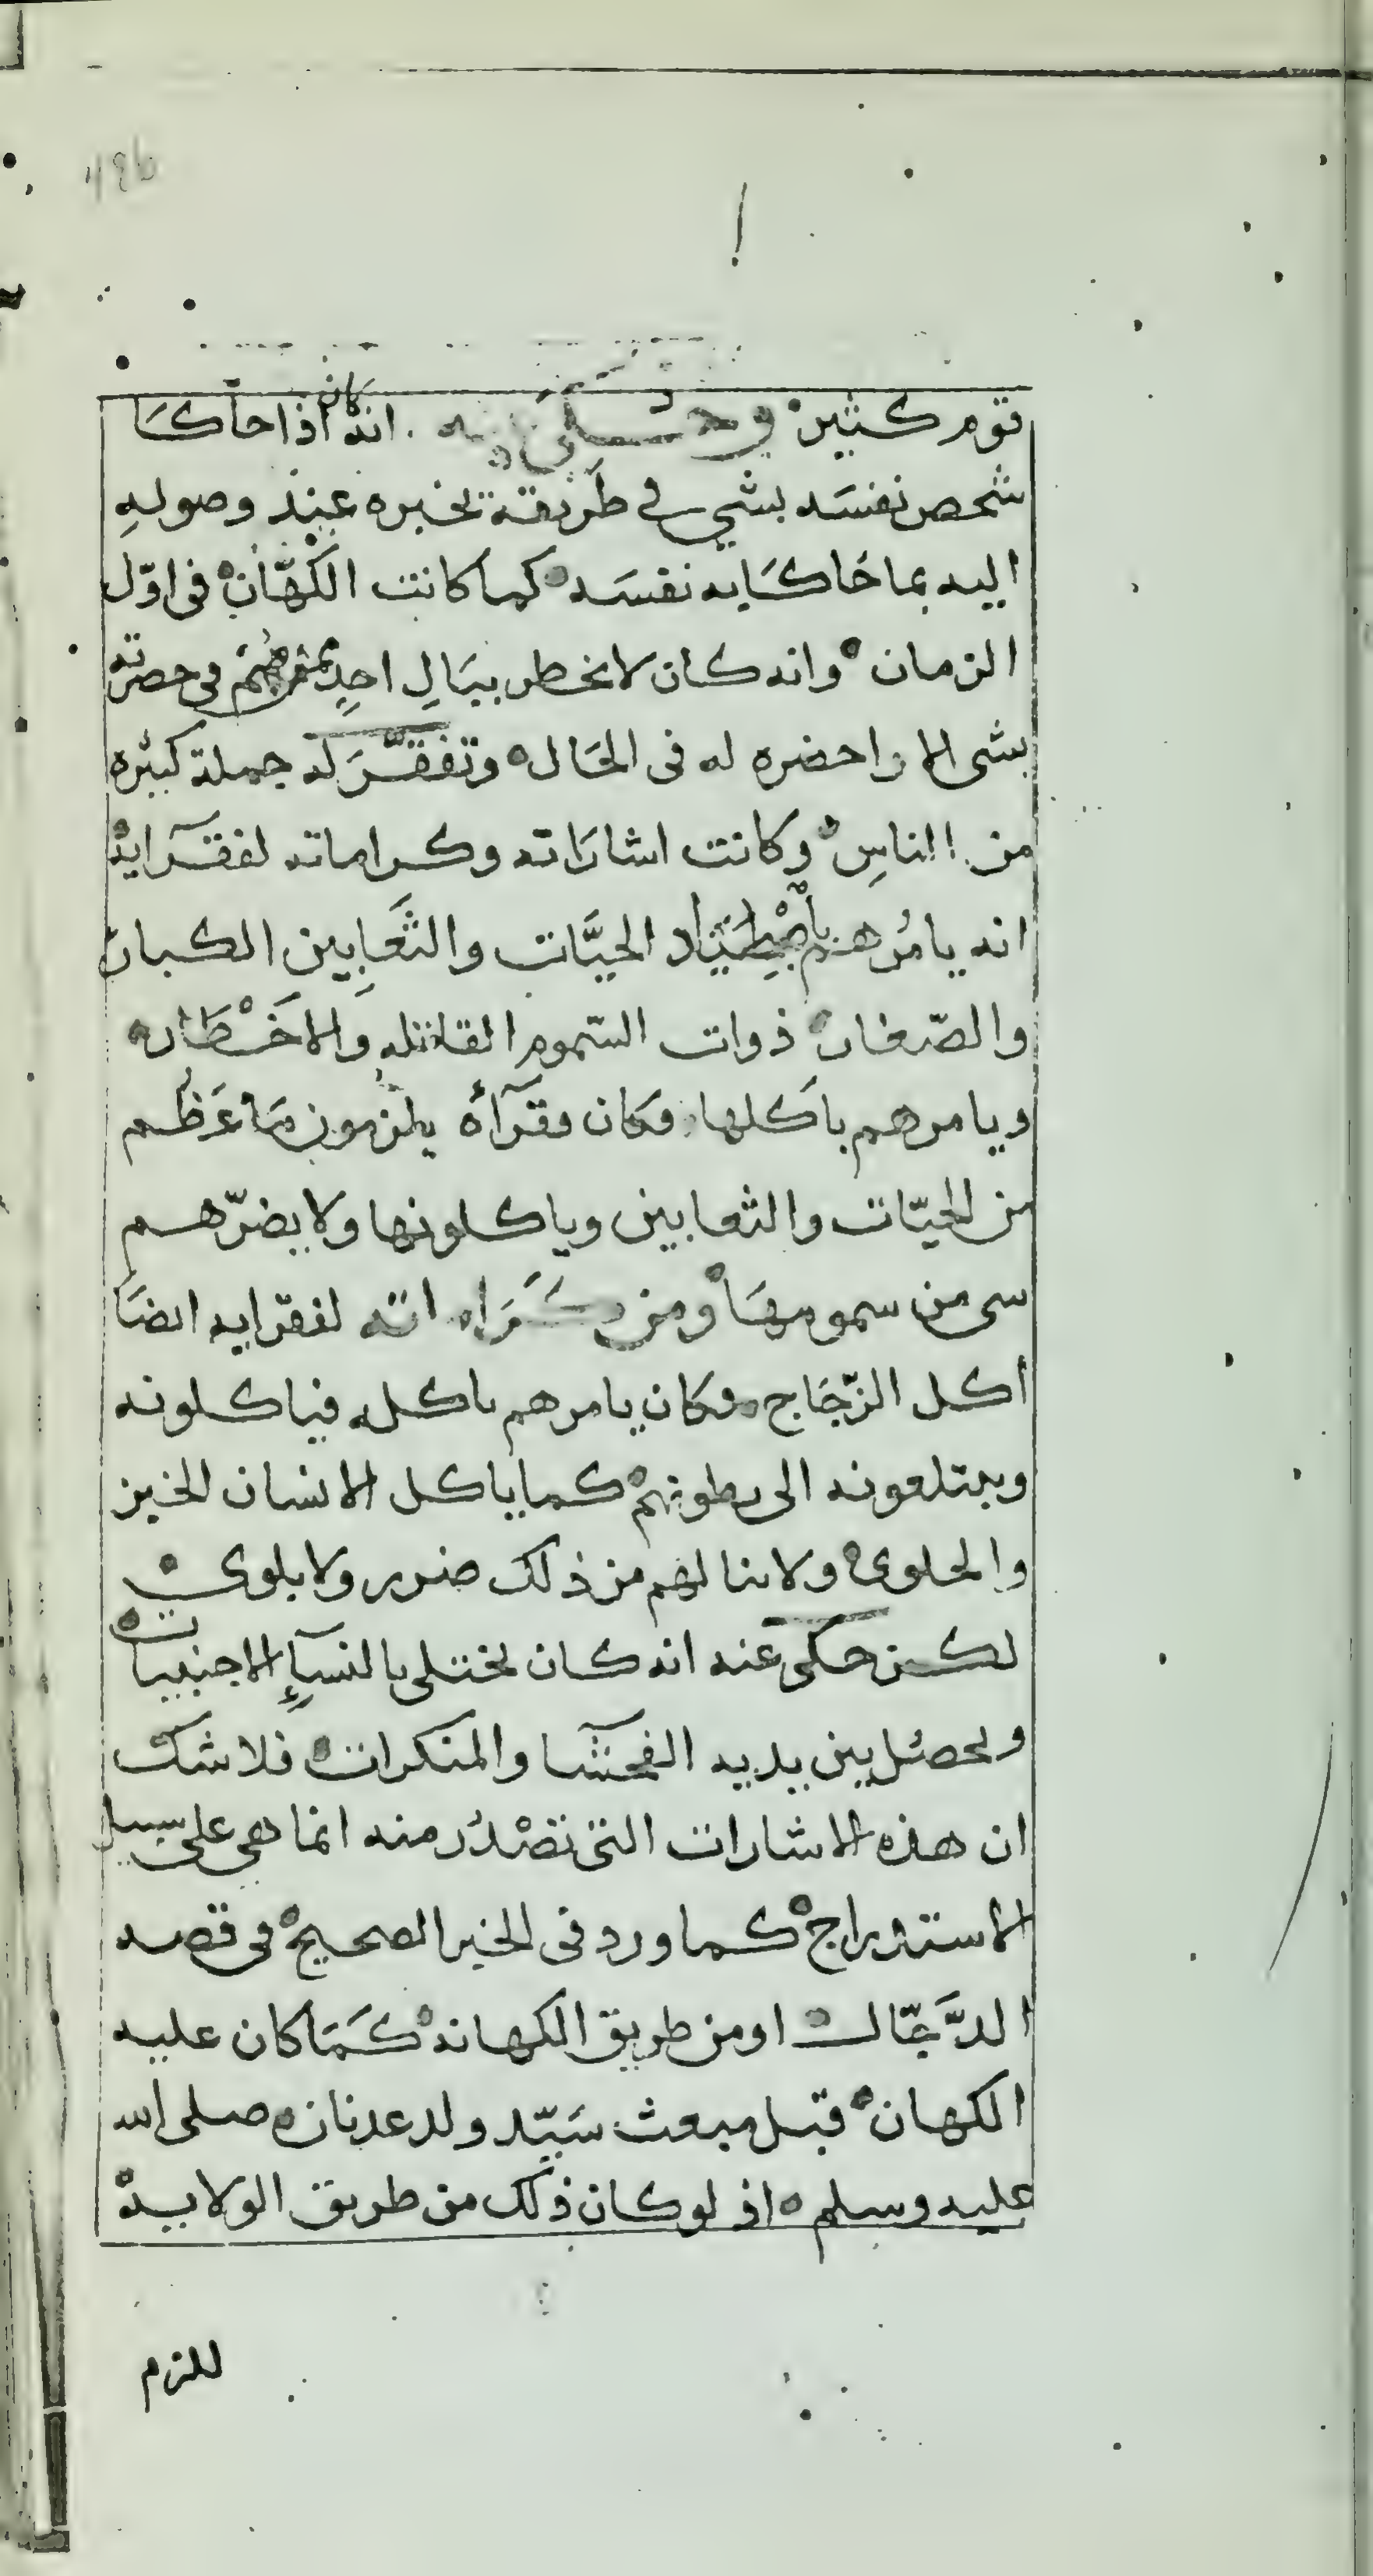 قوم كثير انه كان اذا حاكا
شخص نفسه بشي في طريقة يخبره عند وصوله
اليه بما حاكا به نفسه كما كانت الكهّان في اوّل
الزمان وانه كان لا يخطر ببال احدٍ في حضرته
بشي الا واحضره له في الحال وتفقّر له جملة كثيره
من الناس وكانت اشاراته وكراماته لفقرايه
انه يامرهم باصطياد الحيّات والثعابين الكبار
والصّغار ذوات السّموم القاتله والاخطار
ويامرهم باكلها فكان فقرآه يلزمون ما عظم
من الحيّات والثعابين وياكلونها ولا يضرّهم
شي من سمومها ومن انه لفقرايه ايضا
أكل الزّجاج وكان يامرهم باكله فياكلونه
ويبتلعونه الى بطونهم كما ياكل الانسان الخبز
والحلوى ولا ينالهم من ذلك ضرر ولا بلوى
لكن حكى عنه انه كان يختلى بالنسآء الاجنبيات
ويحصل بين يديه الفحشا والمنكرات فلا شك
ان هذه الاشارات التي تصدُر منه انما هي على سبيل
الاستدراج كما ورد في الخبر الصحيح في قصه
الدّجّال او من طريق الكهانه كما كان عليه
الكهان قبل مبعث سيّد ولد عدنان صلى الله
عليه وسلم اذ لو كان ذلك من طريق الولايه
للزم